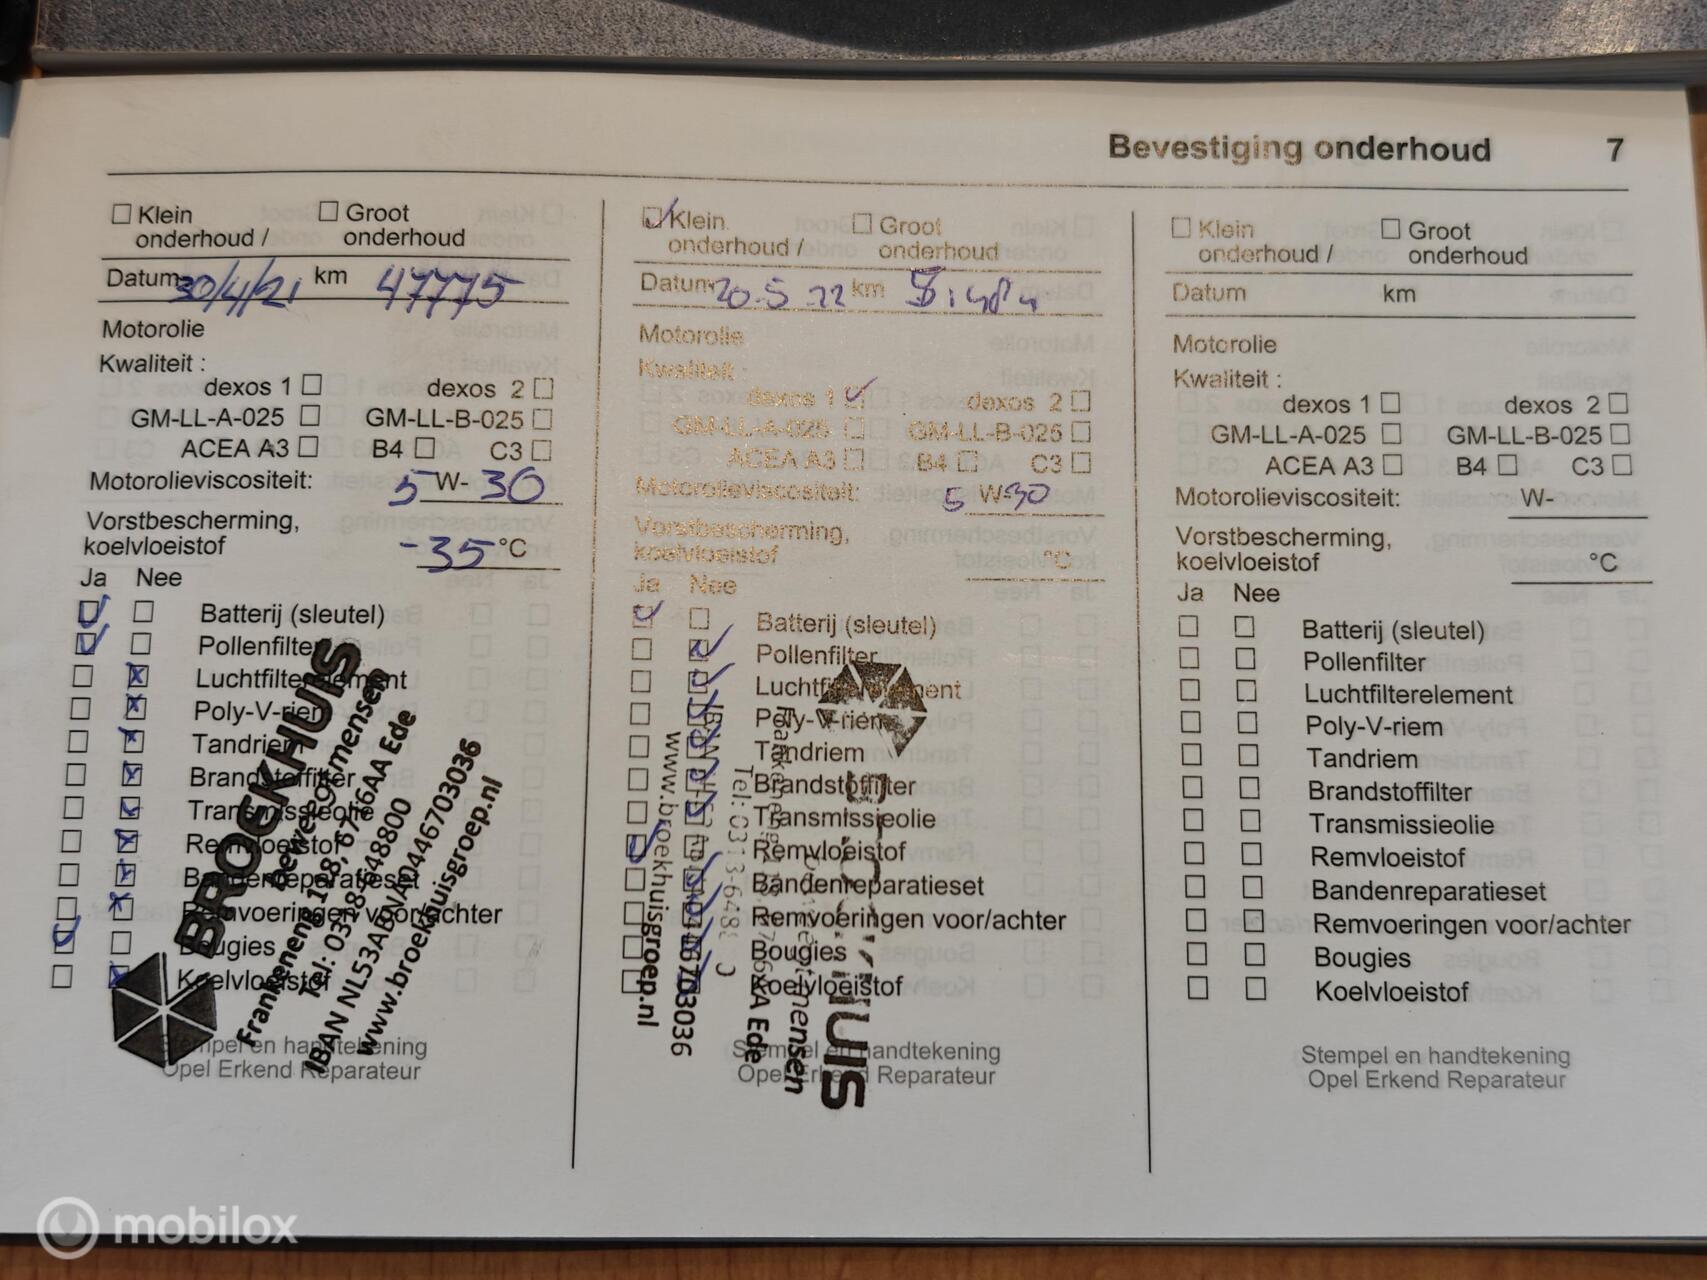 Bevestiging onderhoud 7
Klein onderhoud / Groot onderhoud
Datum 30/4/21 km 47775
Motorolie
Kwaliteit :
dexos 1 dexos 2
GM-LL-A-025 GM-LL-B-025
ACEA A3 B4 C3
Motorolieviscositeit: 5 W- 30
Vorstbescherming,
koelvloeistof -35 °C
Ja Nee
Batterij (sleutel)
Pollenfilter
Luchtfilterelement
Poly-V-riem
Tandriem
Brandstoffilter
Transmissieolie
Remvloeistof
Bandenreparatieset
Remvoeringen voor/achter
Bougies
Koelvloeistof
Stempel en handtekening
Opel Erkend Reparateur
BROEKHUIS
Frankeneng 118, 6716AA Ede
Tel: 0318-648800
IBAN NL53ABNA0446703036
www.broekhuisgroep.nl
Klein onderhoud / Groot onderhoud
Datum 20-5-22 km
Motorolie
Kwaliteit :
dexos 1 dexos 2
GM-LL-A-025 GM-LL-B-025
ACEA A3 B4 C3
Motorolieviscositeit: 5 W-30
Vorstbescherming,
koelvloeistof °C
Ja Nee
Batterij (sleutel)
Pollenfilter
Luchtfilterelement
Poly-V-riem
Tandriem
Brandstoffilter
Transmissieolie
Remvloeistof
Bandenreparatieset
Remvoeringen voor/achter
Bougies
Koelvloeistof
Stempel en handtekening
Opel Erkend Reparateur
www.broekhuisgroep.nl
Klein onderhoud / Groot onderhoud
Datum km
Motorolie
Kwaliteit :
dexos 1 dexos 2
GM-LL-A-025 GM-LL-B-025
ACEA A3 B4 C3
Motorolieviscositeit: W-
Vorstbescherming,
koelvloeistof °C
Ja Nee
Batterij (sleutel)
Pollenfilter
Luchtfilterelement
Poly-V-riem
Tandriem
Brandstoffilter
Transmissieolie
Remvloeistof
Bandenreparatieset
Remvoeringen voor/achter
Bougies
Koelvloeistof
Stempel en handtekening
Opel Erkend Reparateur
mobilox